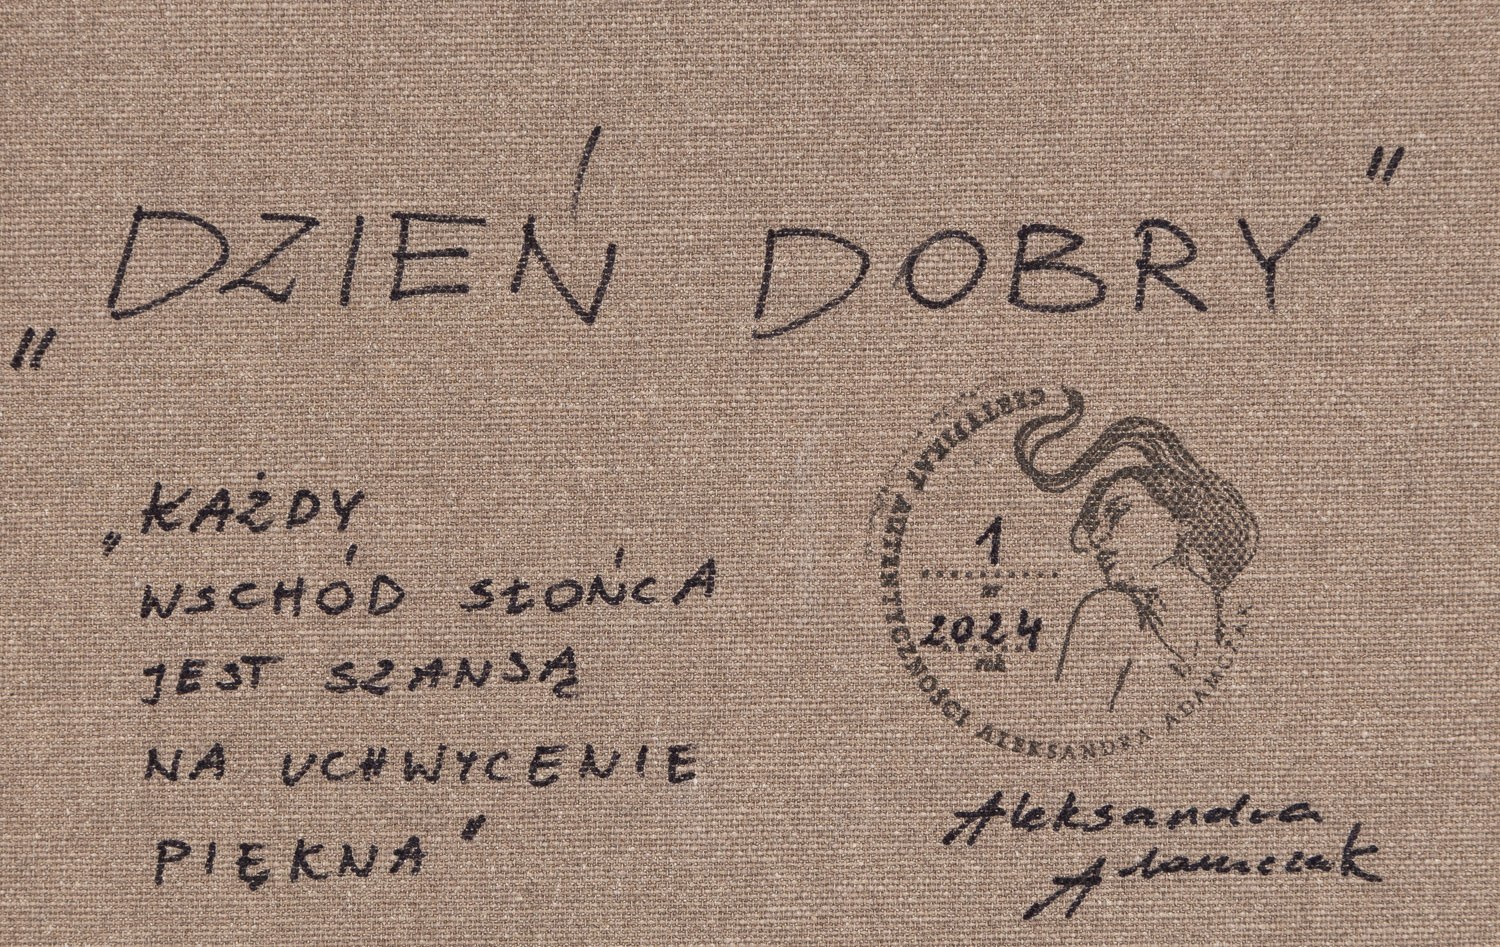 „DZIEŃ DOBRY”
„KAŻDY
WSCHÓD SŁOŃCA
JEST SZANSĄ
NA UCHWYCENIE
PIĘKNA”
CERTYFIKAT AUTENTYCZNOŚCI ALEKSANDRA ADAMCZAK
1
2024
Aleksandra
Adamczak